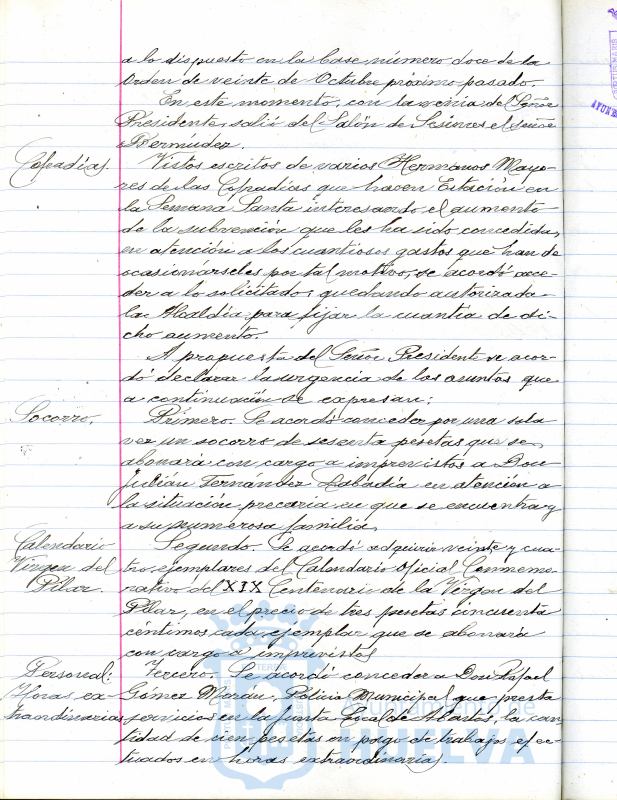 a lo dispuesto en la base número doce de la
Orden de veinte de Octubre próximo pasado.
En este momento, con la venia del Señor
Presidente, salió del Salón de Sesiones el señor
Bermudez.
Cofradías.
Vistos escritos de varios Hermanos Mayo-
res de las Cofradías que hacen Estación en
la Semana Santa interesando el aumento
de la subvención que les ha sido concedida,
en atención a los cuantiosos gastos que han de
ocasionárseles por tal motivo, se acordó acce-
der a lo solicitado, quedando autorizada
la Alcaldía para fijar la cuantía de di-
cho aumento.
A propuesta del Señor Presidente se acor-
dó declarar la urgencia de los asuntos que
a continuación se expresan:
Socorro.
Primero. Se acordó conceder por una sola
vez un socorro de sesenta pesetas que se
abonará con cargo a imprevistos a Don
Julián Fernández Labadía en atención a
la situación precaria en que se encuentra y
a su numerosa familia.
Calendario
Virgen del
Pilar.
Segundo. Se acordó adquirir veinte y cua-
tro ejemplares del Calendario Oficial Conmemo-
rativo del XIX Centenario de la Virgen del
Pilar, en el precio de tres pesetas cincuenta
céntimos cada ejemplar que se abonará
con cargo a imprevistos
Personal:
Horas ex-
traordinarias
Tercero. Se acordó conceder a Don Rafael
Gómez Marán, Policía Municipal que presta
servicios en la Junta Local de Abastos, la can-
tidad de cien pesetas en pago de trabajos efec-
tuados en horas extraordinarias.
Ayuntamiento de
HUELVA